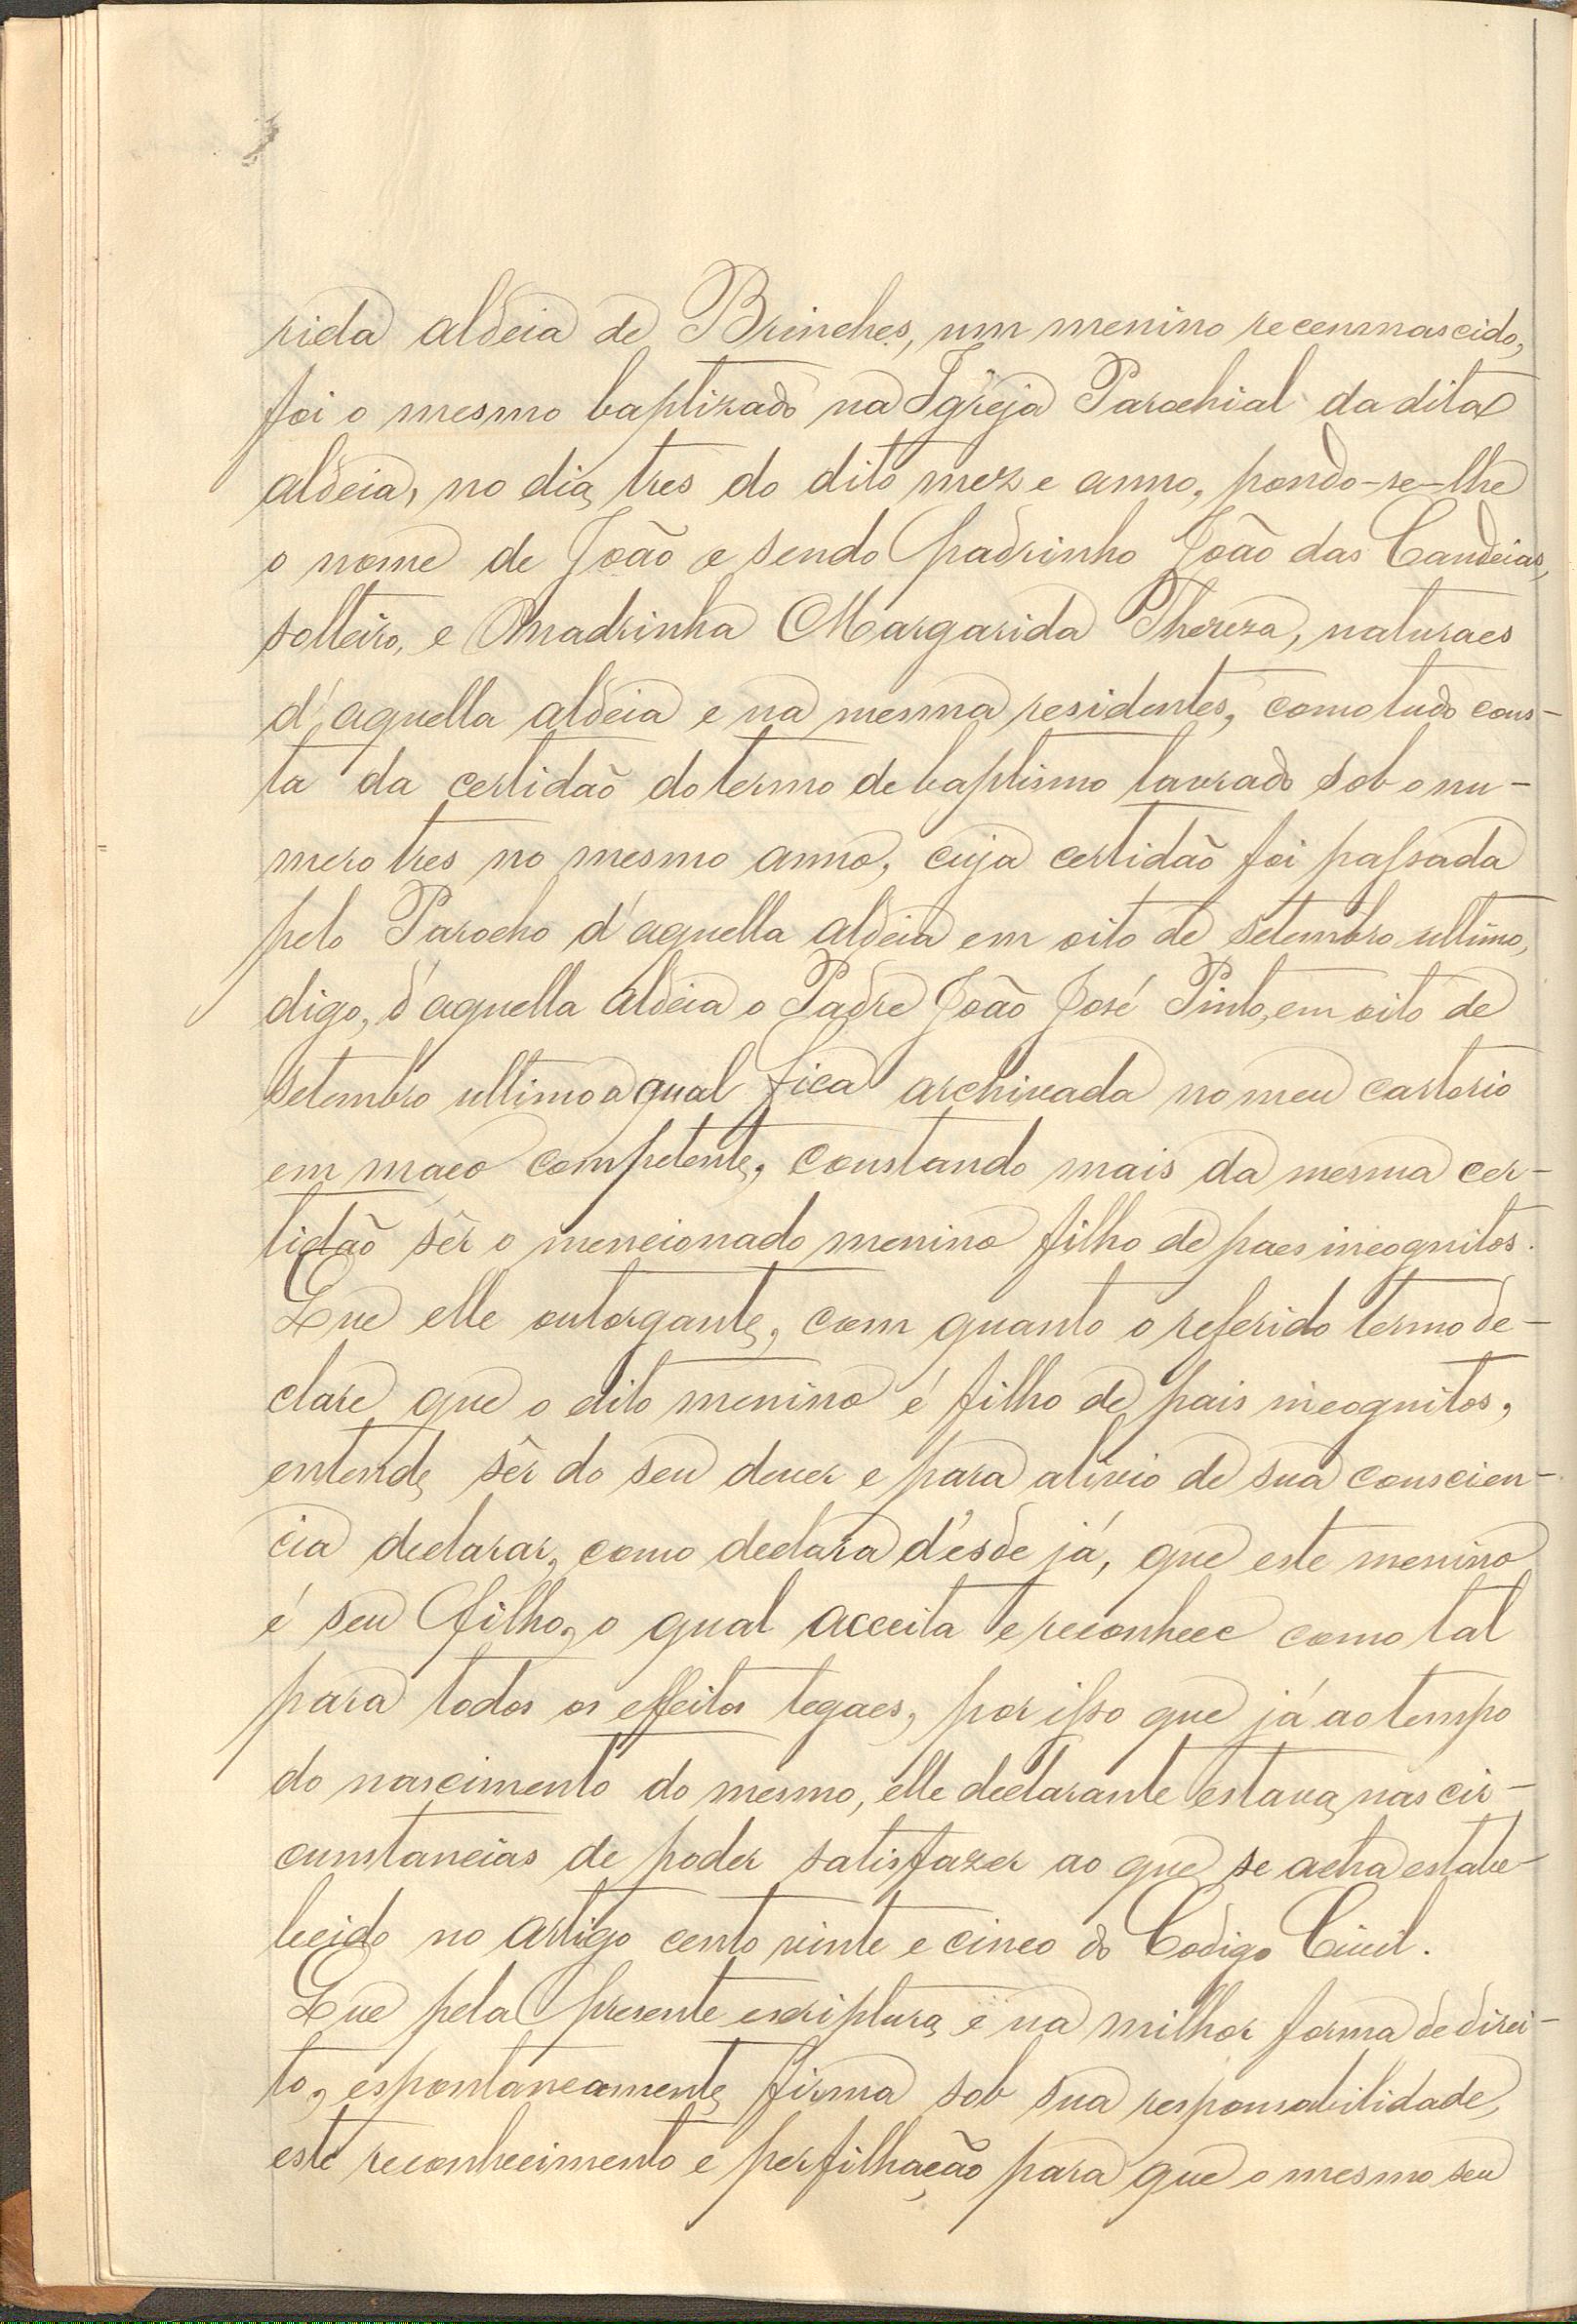 rida aldeia de Brinches, um menino recemnascido,
foi o mesmo baptizado na Igreja Parochial da dita
aldeia, no dia tres do dito mez e anno, pondo-se-lhe
o nome de João e sendo padrinho João das Candeias,
solteiro, e madrinha Margarida Thereza, naturaes
d'aquella aldeia e na mesma residentes, como tudo cons-
ta da certidão do termo de baptismo lavrado sob o nu-
mero tres no mesmo anno, cuja certidão foi passada
pelo Parocho d'aquella aldeia em oito de setembro ultimo,
digo, d'aquella aldeia o Padre João José Pinto, em oito de
setembro ultimo a qual fica archivada no meu cartorio
em maço competente, constando mais da mesma cer-
tidão sêr o mencionado menino filho de paes incognitos.
Que elle outorgante, com quanto o referido termo de-
clare que o dito menino é filho de pais incognitos,
entende sêr do seu dever e para alivio de sua conscien-
cia declarar, como declara d'ésde já, que este menino
é seu filho, o qual acceita e reconhece como tal
para todos os effeitos legaes, por isso que já ao tempo
do nascimento do mesmo, elle declarante estava nas cir-
cumstancias de poder satisfazer ao que se acha estabe-
lecido no artigo cento vinte e cinco do Codigo Civil.
Que pela presente escriptura e na milhor forma de direi-
to, espontaneamente firma sob sua responsabilidade,
este reconhecimento e perfilhação para que o mesmo seu